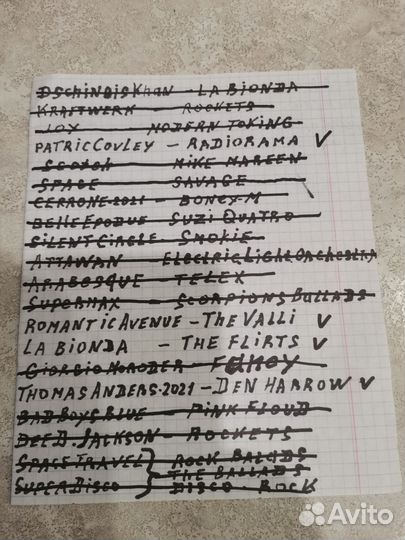 DSCHINGIS KHAN - LA BIONDA
KRAFTWERK - ROCKETS
JOY - MODERN TOKING
PATRIC COVLEY - RADIORAMA ✓
SCOTCH - MIKE MAREEN
SPACE - SAVAGE
CERRONE 2021 - BONEY-M
BELLE EPOQUE SUZI QUATRO
SILENT CIRCLE - SMOKIE
ATTAWAN - Electric Light Orchestra
ARABESQUE - TELEX
SUPERMAX - SCORPIONS BALLADS
ROMANTIC AVENUE - THE VALLI ✓
LA BIONDA - THE FLIRTS ✓
GIORGIO MORODER - FANCY
THOMAS ANDERS.2021 - DEN HARROW ✓
BAD BOYS BLUE - PINK FLOUD
DEE D. JACKSON - ROCKETS
SPACE TRAVEL } ROCK BALADS
THE BALLADS
SUPER DISCO } DISCO - ROCK
Avito